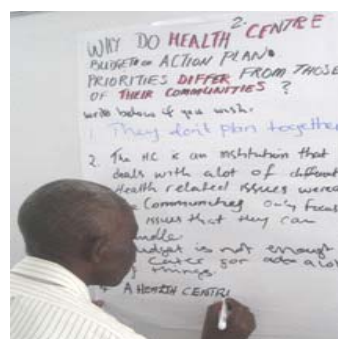 2.
WHY DO HEALTH CENTRE
BUDGET OR ACTION PLAN
PRIORITIES DIFFER FROM THOSE
OF THEIR COMMUNITIES ?
write below if you wish.
1. They don't plan together
2. The HC is an institution that
deals with alot of different
Health related issues were
Communities only focus
issues that they can
handle
budget is not enough
cater for alot
things.
A HEALTH CENTR